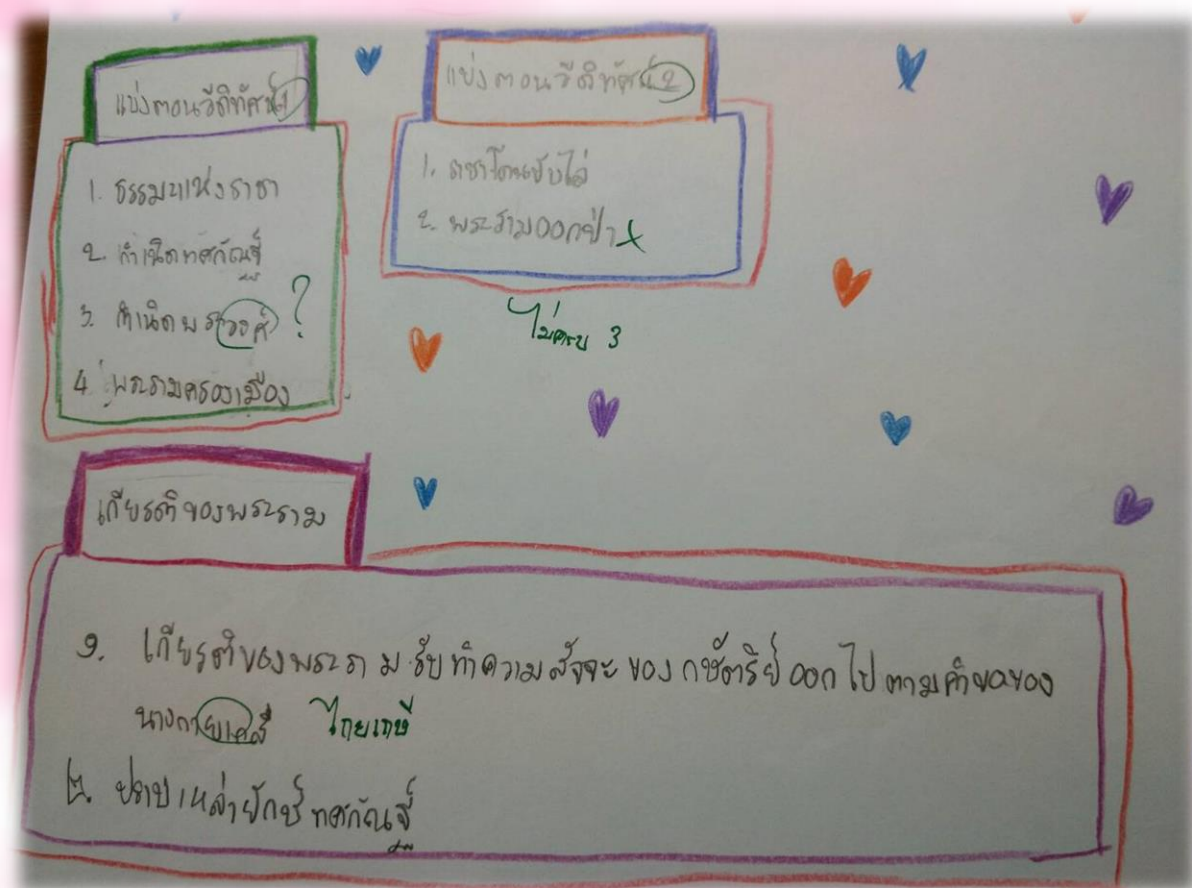 แบ่งตอนวีดิทัศน์ 1
1. ธรรมะแห่งราชา
2. กำเนิดทศกัณฐ์
3. กำเนิดพระองค์ ?
4. พระรามครองเมือง
แบ่งตอนวีดิทัศน์ 2
1. ราชาโดนขับไล่
2. พระรามออกป่า X
ไม่ครบ 3
เกียรติของพระราม
๑. เกียรติของพระราม รับทำความสัจจะ ของ กษัตริย์ ออกไป ตามคำขอของ
ไกยเกษี
๒. ปราบเหล่ายักษ์ ทศกัณฐ์